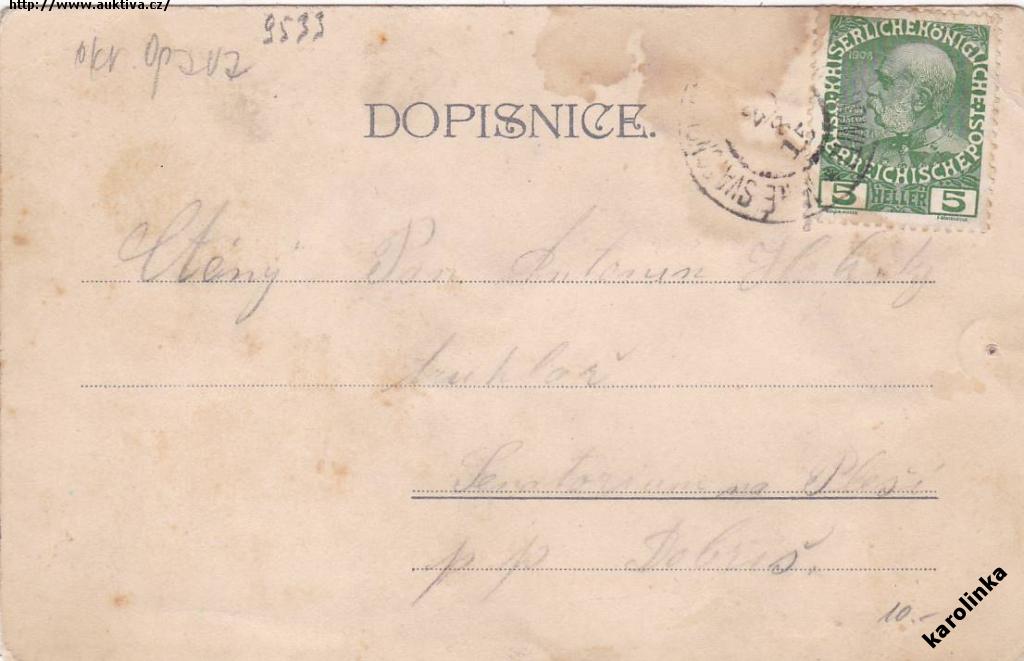 http://www.auktiva.cz/
okr. Opava
9533
DOPISNICE.
KAISERLICHE KÖNIGLICHE
ÖSTERREICHISCHE POST
1908
5 HELLER 5
Ctěný Pan Antonín
truhlář
Senatorium na Pleši
p p Dobříš.
10.-
karolinka